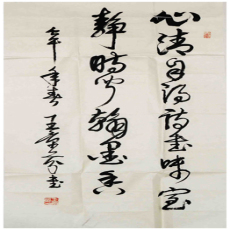 心清自得诗书味室
静时闻翰墨香
年春王
书